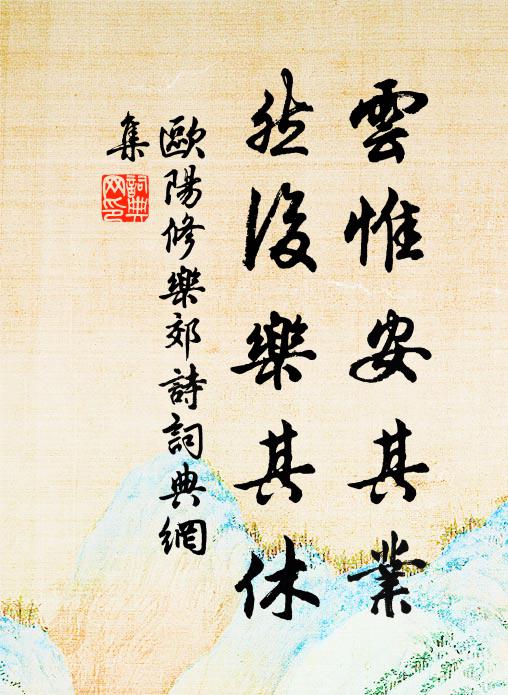 雲惟安其業
然後樂其休
歐陽修樂郊詩詞典網
集
詞典
网印